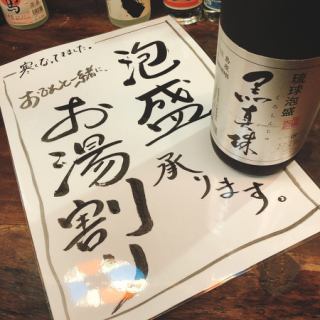 一寒くなってきました。
おでんと一緒に、
泡盛
お湯割り
承ります。
琉球泡盛
黒真珠